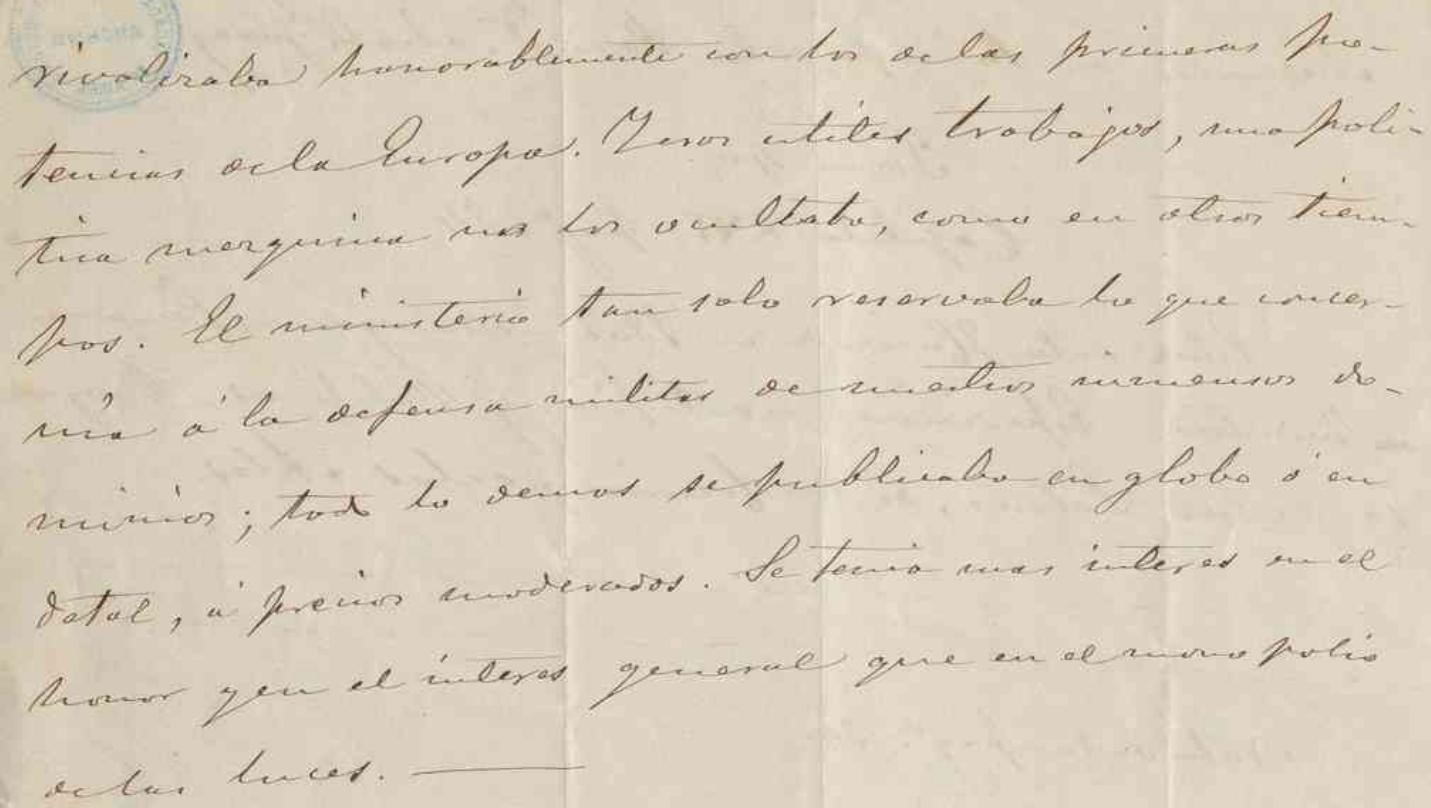 rivalizaba honorablemente con los de las primeras po-
tencias de la Europa. Y esos utiles trabajos, una poli-
tica mezquina nos los ocultaba, como en otros tiem-
pos. El ministerio tan solo reservaba lo que concer-
nía á la defensa militar de nuestros inmensos do-
minios; todo lo demas se publicaba en globo ó en
detal, á precios moderados. Se tenia mas interes en el
honor y en el interes general que en el monopolio
de las luces. —